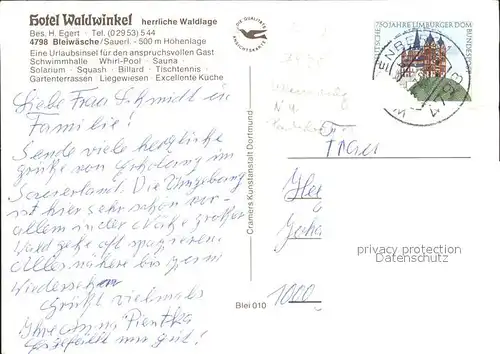 Hotel Waldwinkel herrliche Waldlage
Bes. H. Egert · Tel. (02953) 544
4798 Bleiwäsche/Sauerl. - 500 m Höhenlage
Eine Urlaubsinsel für den anspruchsvollen Gast
Schwimmhalle · Whirl-Pool · Sauna
Solarium · Squash · Billard · Tischtennis ·
Gartenterrassen · Liegewiesen · Exzellente Küche
DIE QUALITÄTS
ANSICHTSKARTE
750 JAHRE LIMBURGER DOM
DEUTSCHE BUNDESPOST
Liebe Frau Schmidt u.
Familie!
Sende viele herzliche
grüße von Erholung im
Sauerland. Die Umgebung
ist hier sehr schön vor-
allem in der Nähe großer
Wald gehe oft spazieren.
Alles nähere bis zum
Wiedersehen
grüßt vielmals
Ihre Anna
gefällt mir gut!
Frau
1000
Cramers Kunstanstalt Dortmund
Blei 010
privacy protection
Datenschutz